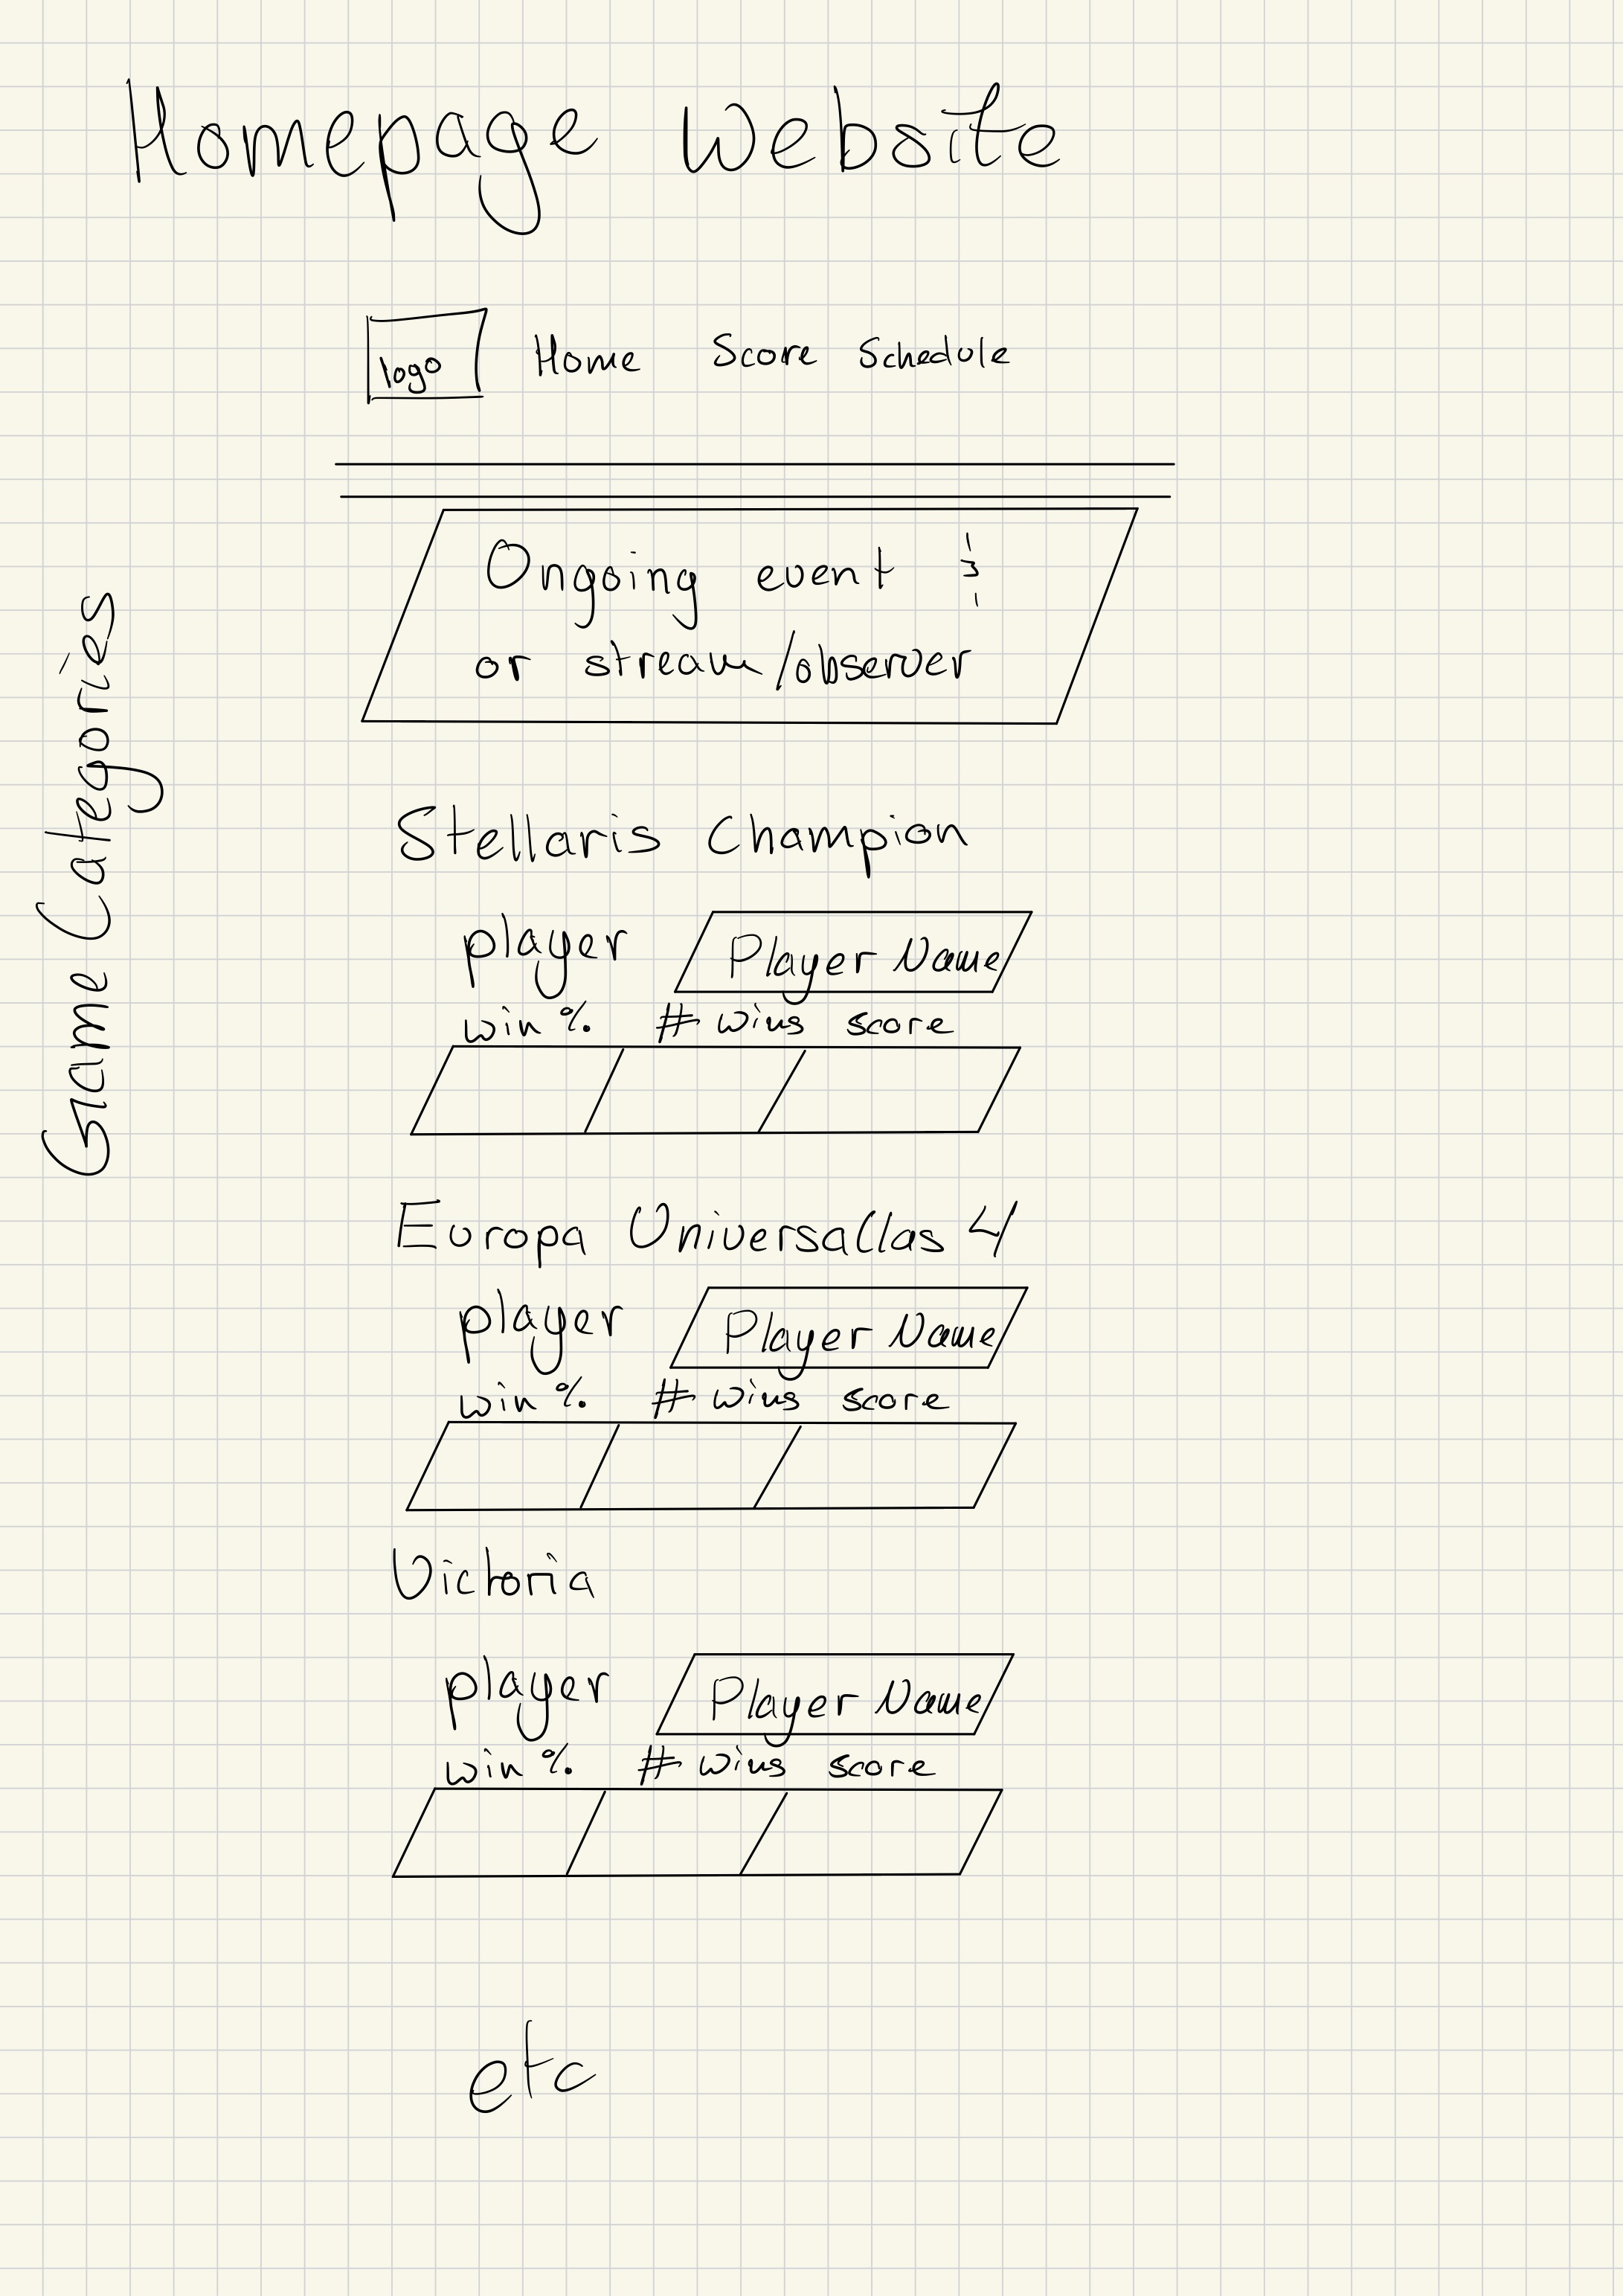 Homepage Website
logo Home Score Schedule
Ongoing event &
or stream/observer
Game Categories
Stellaris Champion
player Player Name
win % # wins score
Europa Universallas 4
player Player Name
win % # wins score
Victoria
player Player Name
win % # wins score
etc